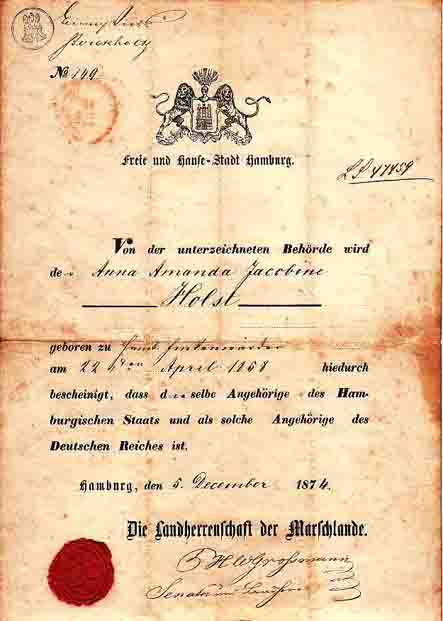 No 149
Freie und Hanse-Stadt Hamburg.
Von der unterzeichneten Behörde wird
de Anna Amanda Jacobine
Holst
geboren zu Hamb. Finkenwärder
am 22ten April 1858 hiedurch
bescheinigt, dass dieselbe Angehörige des Ham-
burgischen Staats und als solche Angehörige des
Deutschen Reiches ist.
Hamburg, den 5. December 1874.
Die Landherrenschaft der Marschlande.
Grossmann
Senator und Landherr